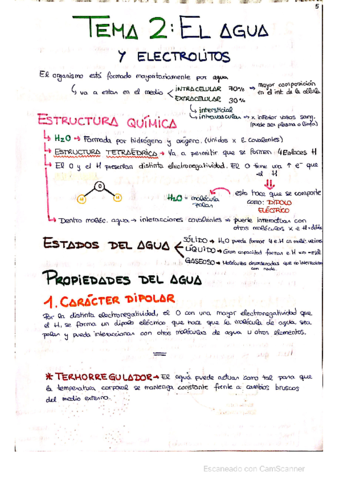 5
TEMA 2: EL AGUA
Y ELECTROLITOS
El organismo está formado mayoritariamente por agua
↳ va a estar en el medio < INTRACELULAR 70% → mayor composición en el int. de la célula
EXTRACELULAR 30%
↳ intersticial
↳ intravascular → x interior vasos sang.
(puede ser plasma o linfa)
ESTRUCTURA QUÍMICA
→ H2O → Formada por hidrógeno y oxígeno. (Unidos x E covalentes)
→ ESTRUCTURA TETRAÉDRICA → Va a permitir que se formen 4 Enlaces H
→ El O y el H presentan distinta electronegatividad. El O tiene una ↑ e⁻ que
el H
O
H
H
H2O → molécula
polar
esto hace que se comporte
como: DIPOLO
ELÉCTRICO
↳ Dentro moléc. agua → interacciones covalentes → puede interactuar con
otras moléculas x e H
ESTADOS DEL AGUA
SÓLIDO → H2O puede formar 4 e H con moléc. vecinas
LÍQUIDO → Gran capacidad formar e H
GASEOSO → Moléculas que no interaccionan
con nada.
PROPIEDADES DEL AGUA
1. CARÁCTER DIPOLAR
Por la distinta electronegatividad, el O con una mayor electronegatividad que
el H, se forma un dipolo eléctrico que hace que la molécula de agua sea
polar y pueda interaccionar con otras moléculas de agua u otros elementos.
* TERMORREGULADOR → El agua puede actuar como tal para que
la temperatura corporal se mantenga constante frente a cambios bruscos
del medio externo.
Escaneado con CamScanner